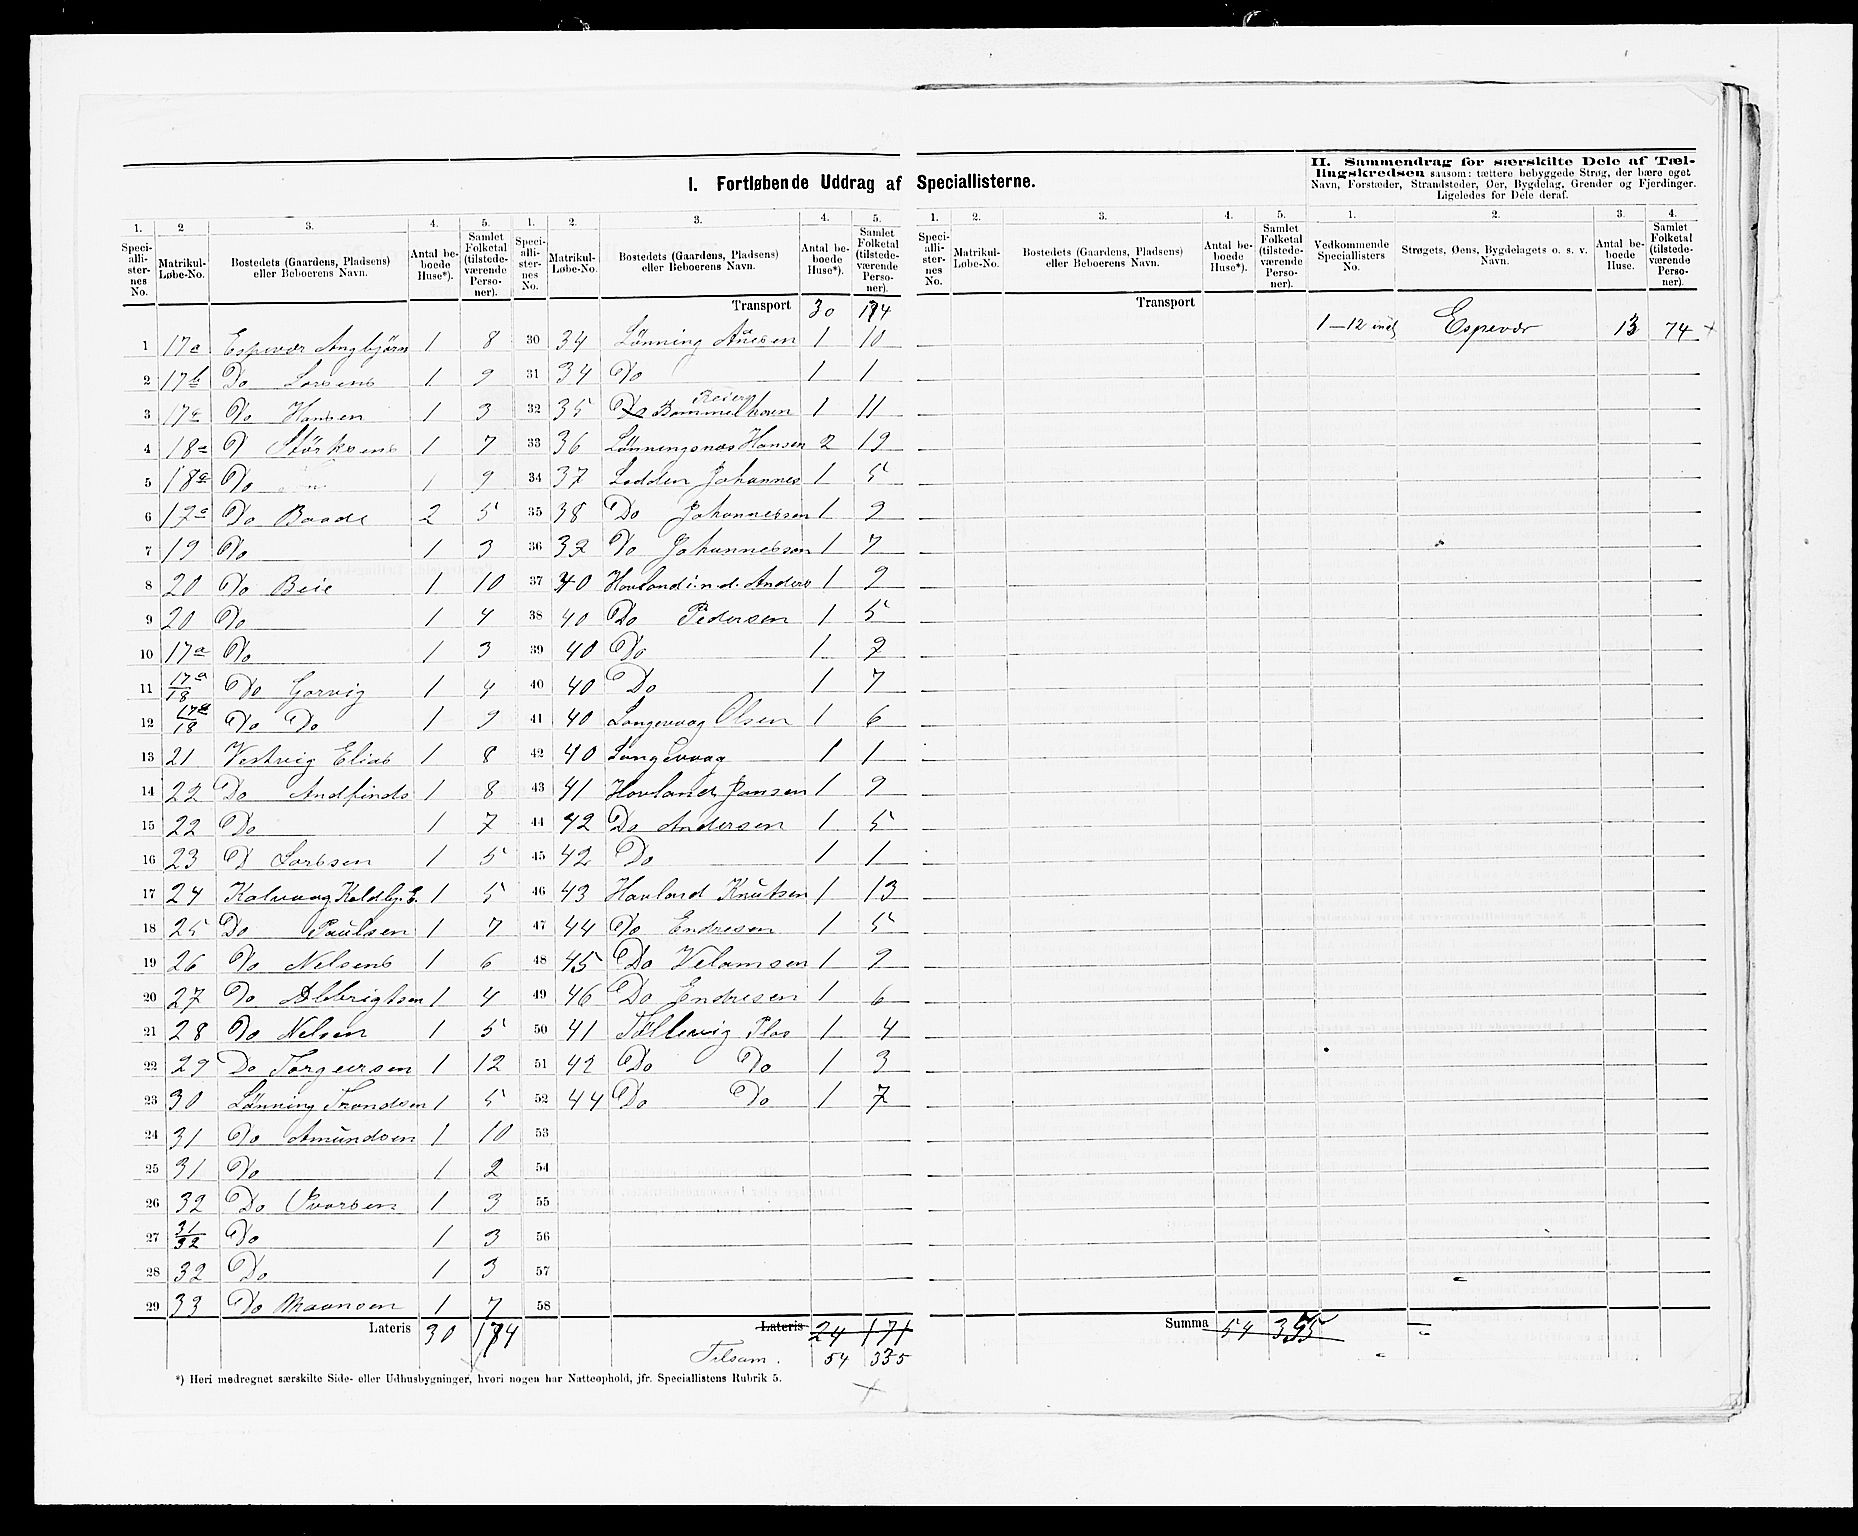 I. Fortløbende Uddrag af Speciallisterne.
II. Sammendrag for særskilte Dele af Tællingskredsen saasom: tættere bebyggede Strøg, der bære eget
Navn, Forstæder, Strandsteder, Øer, Bygdelag, Grender og Fjerdinger.
Ligeledes for Dele deraf.
1. 2 3. 4. 5. 1. 2. 3. 4. 5. 1. 2. 3. 4. 5. 1. 2. 3. 4.
Speciallisternes No. Matrikul-Løbe-No. Bostedets (Gaardens, Pladsens) eller Beboerens Navn. Antal beboede Huse*). Samlet Folketal (tilstedeværende Personer).
Speciallisternes No. Matrikul-Løbe-No. Bostedets (Gaardens, Pladsens) eller Beboerens Navn. Antal beboede Huse*). Samlet Folketal (tilstedeværende Personer).
Speciallisternes No. Matrikul-Løbe-No. Bostedets (Gaardens, Pladsens) eller Beboerens Navn. Antal beboede Huse*). Samlet Folketal (tilstedeværende Personer).
Vedkommende Speciallisters No. Strøgets, Øens, Bygdelagets o. s. v. Navn. Antal beboede Huse. Samlet Folketal (tilstedeværende Personer).
1 17a Espevær Angbjörn 1 8
2 17b Do Larsens 1 9
3 17a Do Hansen 1 3
4 18a D Störksens 1 7
5 18a Do 1 9
6 17a Do Baade 2 5
7 19 Do 1 3
8 20 Do Beie 1 10
9 20 Do 1 4
10 17a Do 1 3
11 17a/18 Do Garvig 1 4
12 17a/18 Do Do 1 9
13 21 Vestvig Elias 1 8
14 22 Do Andfinds 1 8
15 22 Do 1 7
16 23 D Larsen 1 5
17 24 Kalvaag Koldbj. E. 1 5
18 25 Do Paulsen 1 7
19 26 Do Nelsens 1 6
20 27 Do Albrigtsen 1 4
21 28 Do Nelsen 1 5
22 29 Do Torgersen 1 12
23 30 Lønning Trondsen 1 5
24 31 Do Amundsen 1 10
25 31 Do 1 2
26 32 Do Ivarsen 1 3
27 31/32 Do 1 3
28 32 Do 1 3
29 33 Do Maonsen 1 7
Lateris 30 184
Transport 30 184
30 34 Lønning Aaesen 1 10
31 34 Do 1 1
32 35 Do Reiers Bommelhavn 1 11
33 36 Lønningsnæs Hansen 2 19
34 37 Lodden Johannes 1 5
35 38 Do Johannessen 1 9
36 39 Do Johannessen 1 7
37 40 Hovland i.n.d. Anders 1 9
38 40 Do Pedersen 1 5
39 40 Do 1 2
40 40 Do 1 7
41 40 Langevaag Olsen 1 6
42 40 Langevaag 1 1
43 41 Hovland Jansen 1 9
44 42 Do Andersen 1 5
45 42 Do 1 1
46 43 Hovland Knutsen 1 13
47 44 Do Endresen 1 5
48 45 Do Velomsen 1 9
49 46 Do Endresen 1 6
50 41 Tollevig Plds 1 4
51 42 Do Do 1 3
52 44 Do Do 1 7
53
54
55
56
57
58
Lateris 24 171
Tilsam. 54 335
Transport
Summa 54 355
1–12 incl Espevær 13 74
*) Heri medregnet særskilte Side- eller Udhusbygninger, hvori nogen har Natteophold, jfr. Speciallistens Rubrik 5.